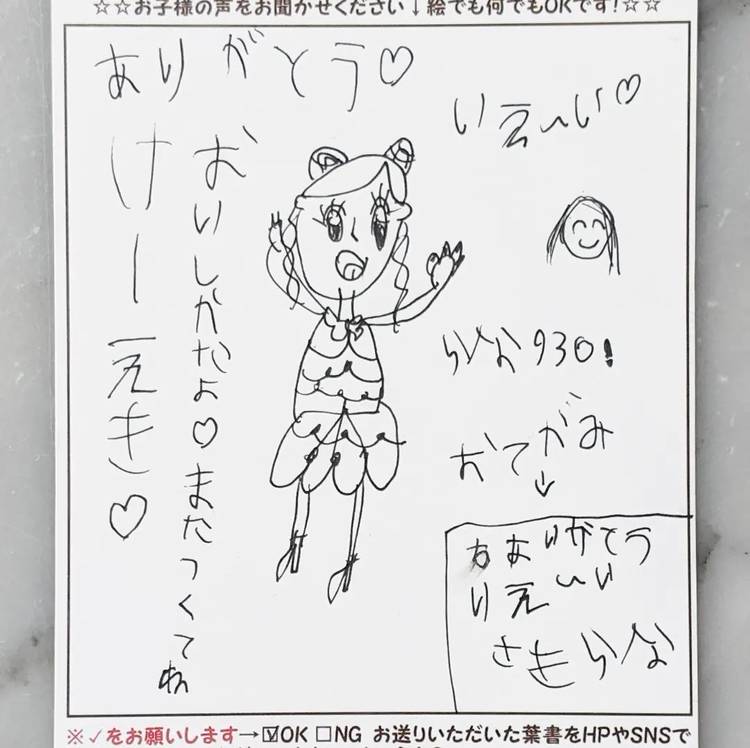 ☆☆お子様の声をお聞かせください↓絵でも何でもOKです!☆☆
ありがとう♡
けーえき♡
おいしかたよ♡またつくてね
いえ〜い♡
らへな930!
おてがみ
↓
ありがとう
いえ〜い
さもらへな
※✓をお願いします→☑OK □NG お送りいただいた葉書をHPやSNSで